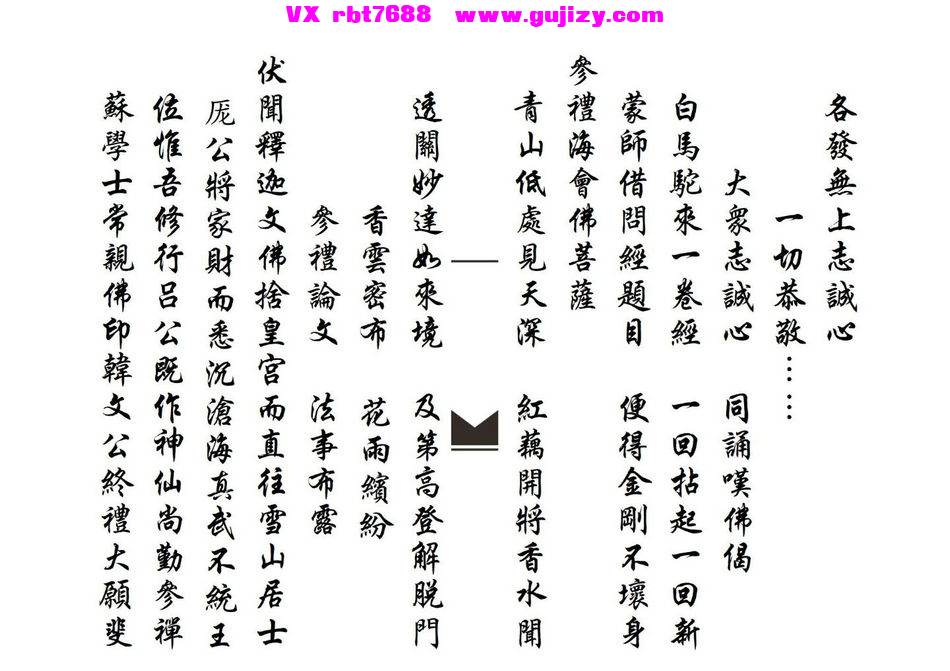 VX rbt7688 www.gujizy.com
各發無上志誠心
一切恭敬……
大衆志誠心 同誦嘆佛偈
白馬駝來一卷經 一回拈起一回新
蒙師借問經題目 便得金剛不壞身
參禮海會佛菩薩
青山低處見天深 紅藕開將香水聞
透關妙達如來境 及第高登解脫門
香雲密布 花雨繽紛
參禮論文 法事布露
伏聞釋迦文佛捨皇宮而直往雪山居士
厐公將家財而悉沉滄海真武不統王
位惟吾修行呂公既作神仙尚勤參禪
蘇學士常親佛印韓文公終禮大願斐